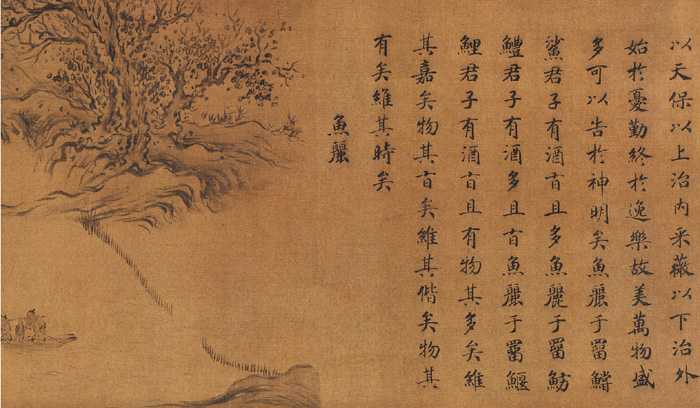 以天保以上治内采薇以下治外
始於憂勤終於逸樂故美萬物盛
多可以告於神明矣魚麗于罶鱨
鯊君子有酒旨且多魚麗于罶魴
鱧君子有酒多且旨魚麗于罶鰋
鯉君子有酒旨且有物其多矣維
其嘉矣物其旨矣維其偕矣物其
有矣維其時矣
魚麗